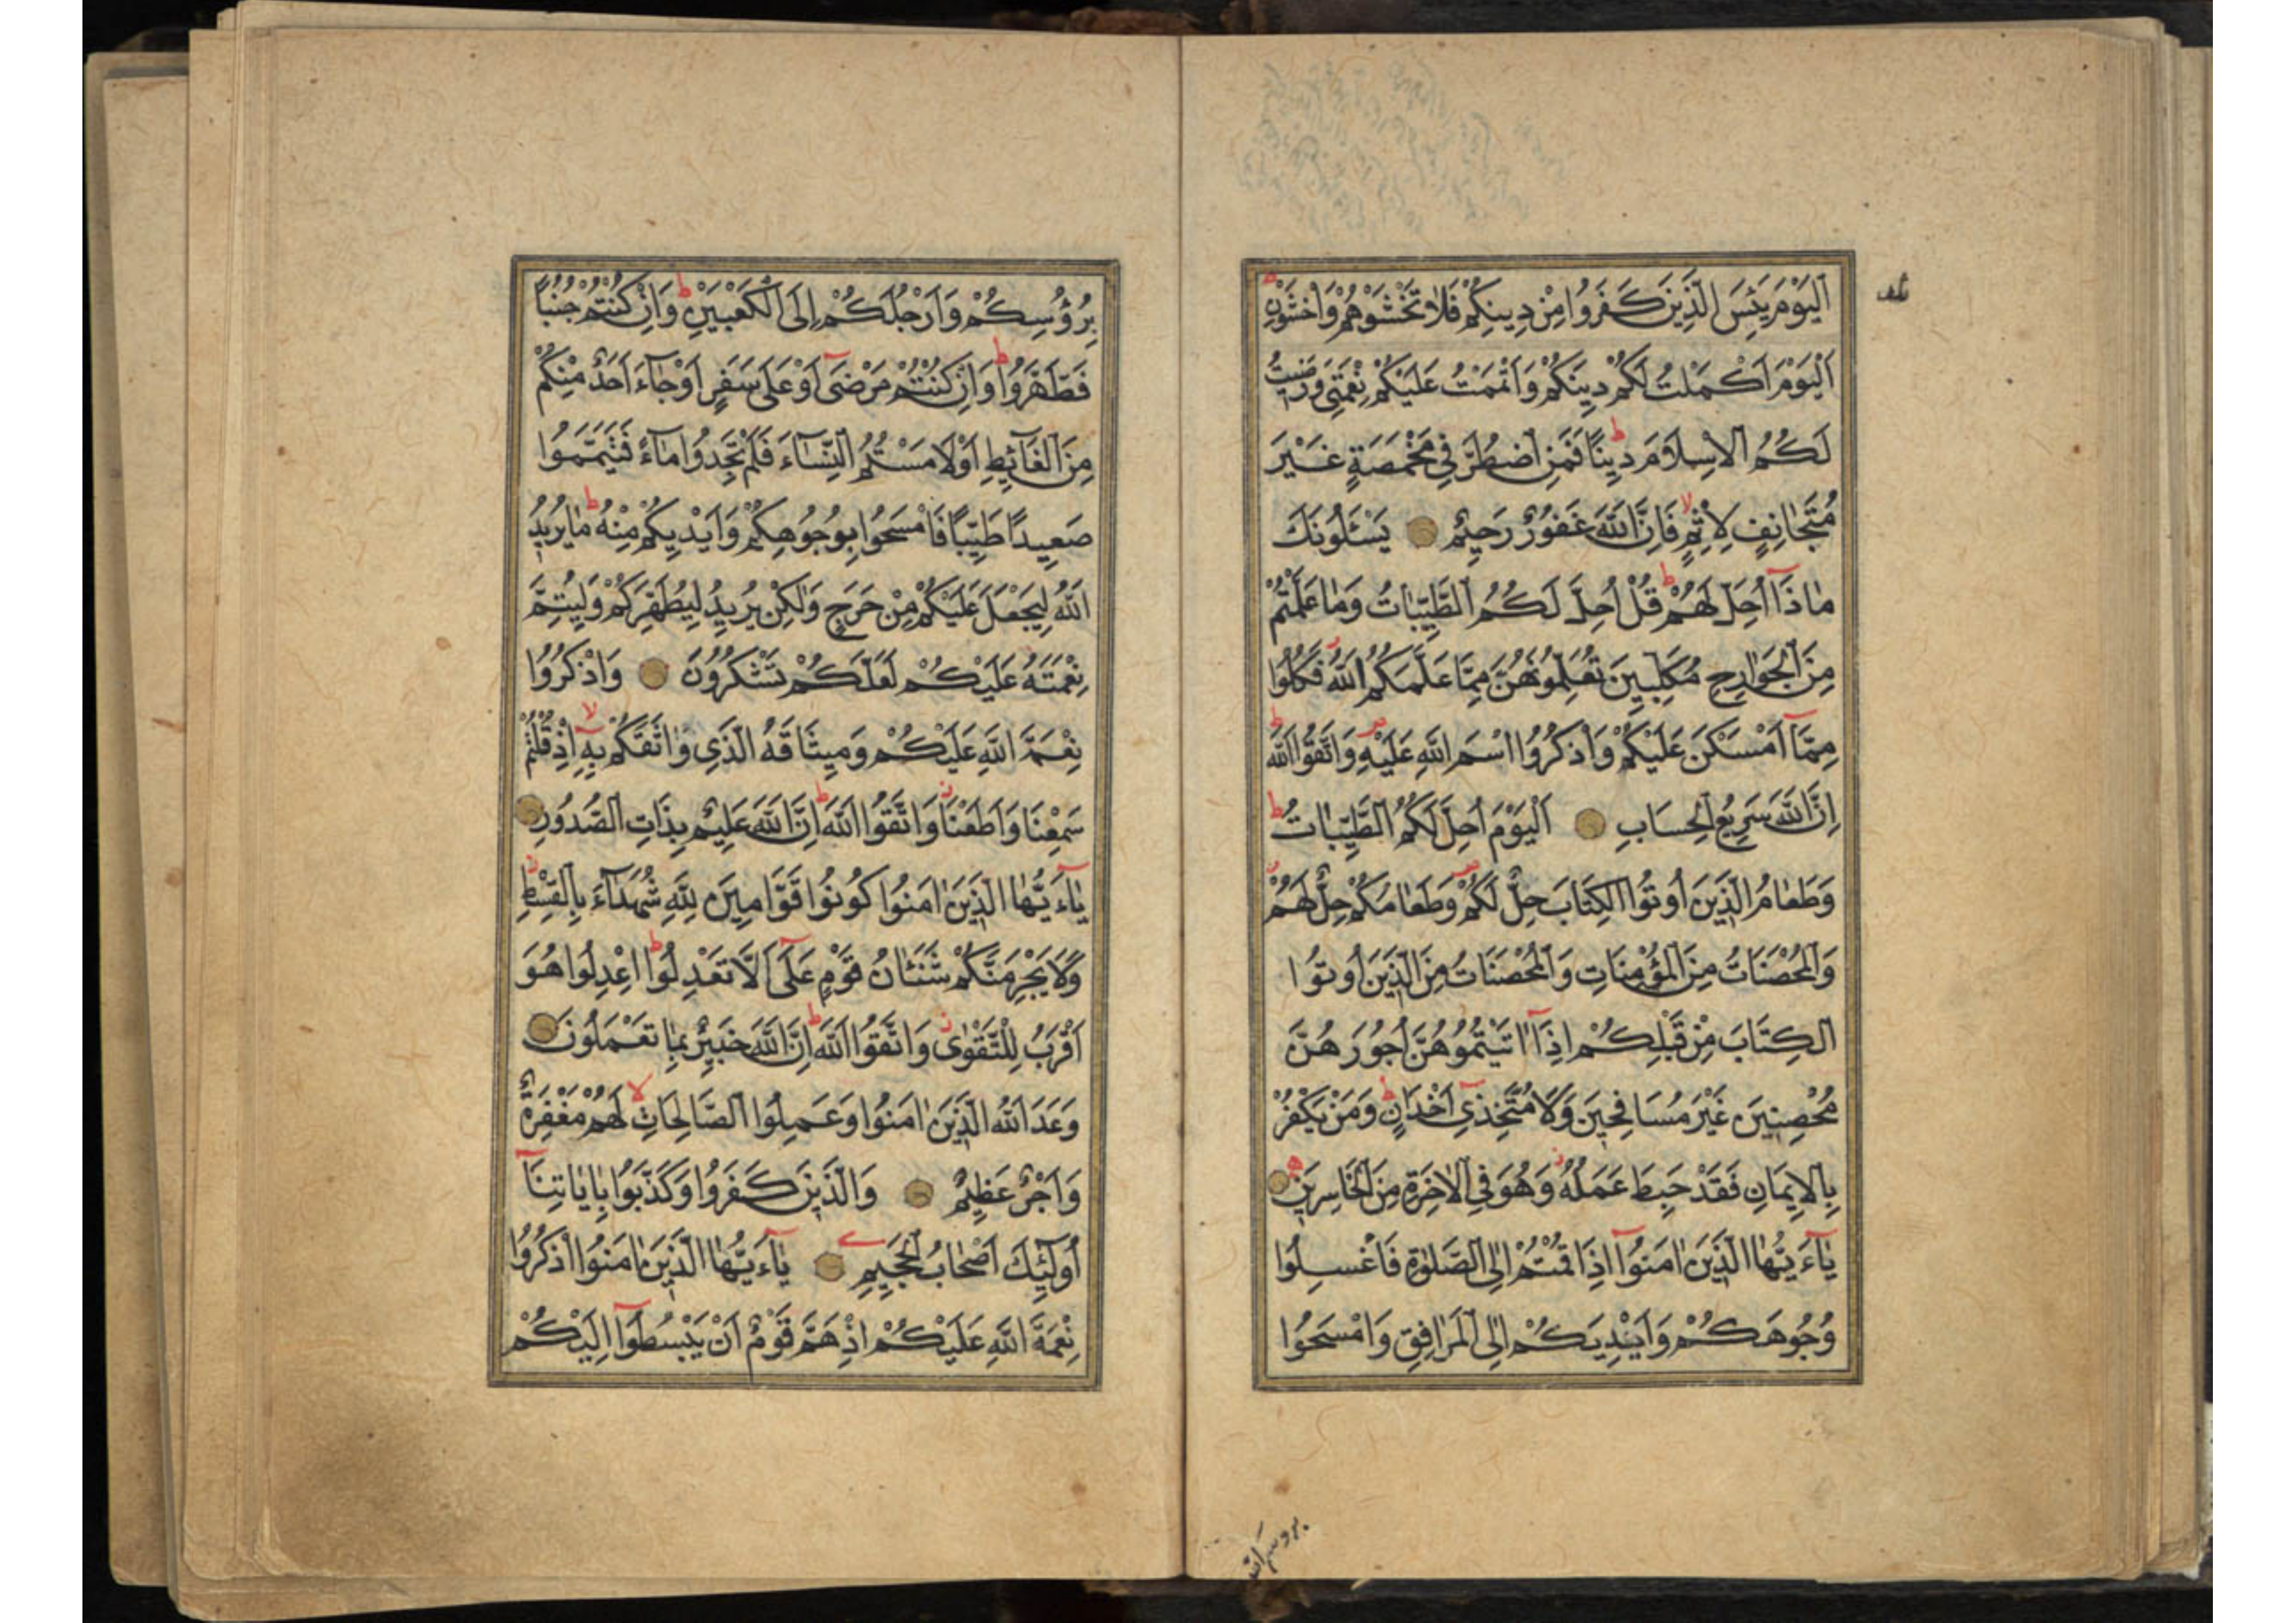 اَلْيَوْمَ يَئِسَ الَّذِينَ كَفَرُوا مِنْ دِينِكُمْ فَلَا تَخْشَوْهُمْ وَاخْشَوْنِ
اَلْيَوْمَ اَكْمَلْتُ لَكُمْ دِينَكُمْ وَاَتْمَمْتُ عَلَيْكُمْ نِعْمَتِي وَرَضِيتُ
لَكُمُ الْاِسْلَامَ دِينًا فَمَنِ اضْطُرَّ فِي مَخْمَصَةٍ غَيْرَ
مُتَجَانِفٍ لِاِثْمٍ فَاِنَّ اللّٰهَ غَفُورٌ رَحِيمٌ يَسْئَلُونَكَ
مَاذَآ اُحِلَّ لَهُمْ قُلْ اُحِلَّ لَكُمُ الطَّيِّبَاتُ وَمَا عَلَّمْتُمْ
مِنَ الْجَوَارِحِ مُكَلِّبِينَ تُعَلِّمُونَهُنَّ مِمَّا عَلَّمَكُمُ اللّٰهُ فَكُلُوا
مِمَّآ اَمْسَكْنَ عَلَيْكُمْ وَاذْكُرُوا اسْمَ اللّٰهِ عَلَيْهِ وَاتَّقُوا اللّٰهَ
اِنَّ اللّٰهَ سَرِيعُ الْحِسَابِ اَلْيَوْمَ اُحِلَّ لَكُمُ الطَّيِّبَاتُ
وَطَعَامُ الَّذِينَ اُوتُوا الْكِتَابَ حِلٌّ لَكُمْ وَطَعَامُكُمْ حِلٌّ لَهُمْ
وَالْمُحْصَنَاتُ مِنَ الْمُؤْمِنَاتِ وَالْمُحْصَنَاتُ مِنَ الَّذِينَ اُوتُوا
الْكِتَابَ مِنْ قَبْلِكُمْ اِذَآ اٰتَيْتُمُوهُنَّ اُجُورَهُنَّ
مُحْصِنِينَ غَيْرَ مُسَافِحِينَ وَلَا مُتَّخِذِي اَخْدَانٍ وَمَنْ يَكْفُرْ
بِالْاِيمَانِ فَقَدْ حَبِطَ عَمَلُهُ وَهُوَ فِي الْاٰخِرَةِ مِنَ الْخَاسِرِينَ
يَآءَيُّهَا الَّذِينَ اٰمَنُوآ اِذَا قُمْتُمْ اِلَى الصَّلٰوةِ فَاغْسِلُوا
وُجُوهَكُمْ وَاَيْدِيَكُمْ اِلَى الْمَرَافِقِ وَامْسَحُوا
بروسكم
بِرُؤُسِكُمْ وَاَرْجُلَكُمْ اِلَى الْكَعْبَيْنِ وَاِنْ كُنْتُمْ جُنُبًا
فَاطَّهَّرُوا وَاِنْ كُنْتُمْ مَرْضَىٓ اَوْ عَلَى سَفَرٍ اَوْ جَآءَ اَحَدٌ مِنْكُمْ
مِنَ الْغَآئِطِ اَوْ لَامَسْتُمُ النِّسَآءَ فَلَمْ تَجِدُوا مَآءً فَتَيَمَّمُوا
صَعِيدًا طَيِّبًا فَامْسَحُوا بِوُجُوهِكُمْ وَاَيْدِيكُمْ مِنْهُ مَا يُرِيدُ
اللّٰهُ لِيَجْعَلَ عَلَيْكُمْ مِنْ حَرَجٍ وَلَكِنْ يُرِيدُ لِيُطَهِّرَكُمْ وَلِيُتِمَّ
نِعْمَتَهُ عَلَيْكُمْ لَعَلَّكُمْ تَشْكُرُونَ وَاذْكُرُوا
نِعْمَةَ اللّٰهِ عَلَيْكُمْ وَمِيثَاقَهُ الَّذِي وَاثَقَكُمْ بِهِٓ اِذْ قُلْتُمْ
سَمِعْنَا وَاَطَعْنَا وَاتَّقُوا اللّٰهَ اِنَّ اللّٰهَ عَلِيمٌ بِذَاتِ الصُّدُورِ
يَآءَيُّهَا الَّذِينَ اٰمَنُوا كُونُوا قَوَّامِينَ لِلّٰهِ شُهَدَآءَ بِالْقِسْطِ
وَلَا يَجْرِمَنَّكُمْ شَنَئَانُ قَوْمٍ عَلَىٓ اَلَّا تَعْدِلُوا اعْدِلُوا هُوَ
اَقْرَبُ لِلتَّقْوٰى وَاتَّقُوا اللّٰهَ اِنَّ اللّٰهَ خَبِيرٌ بِمَا تَعْمَلُونَ
وَعَدَ اللّٰهُ الَّذِينَ اٰمَنُوا وَعَمِلُوا الصَّالِحَاتِ لَهُمْ مَغْفِرَةٌ
وَاَجْرٌ عَظِيمٌ وَالَّذِينَ كَفَرُوا وَكَذَّبُوا بِاٰيَاتِنَآ
اُولٰٓئِكَ اَصْحَابُ الْجَحِيمِ يَآءَيُّهَا الَّذِينَ اٰمَنُوا اذْكُرُوا
نِعْمَةَ اللّٰهِ عَلَيْكُمْ اِذْ هَمَّ قَوْمٌ اَنْ يَبْسُطُوآ اِلَيْكُمْ